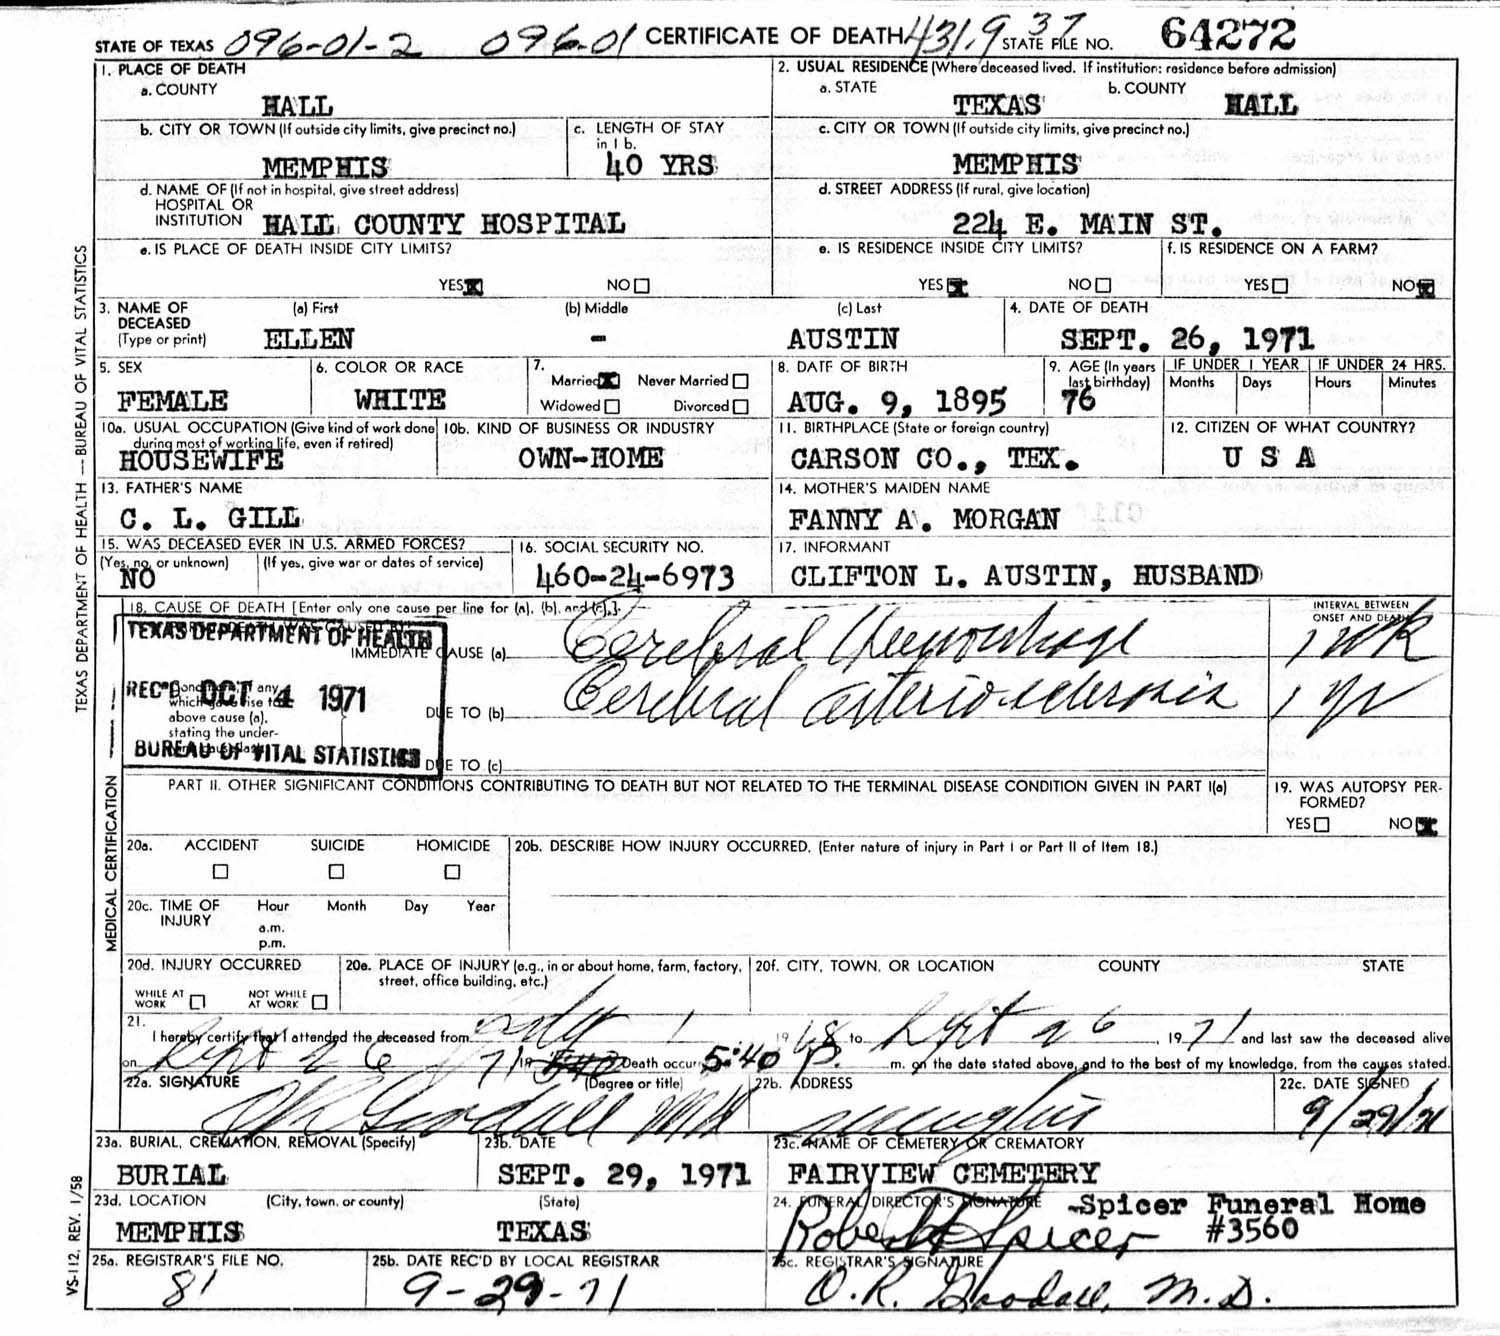 STATE OF TEXAS 096-01-2 096-01 CERTIFICATE OF DEATH 431.9 37 STATE FILE NO. 64272
1. PLACE OF DEATH
a. COUNTY
HALL
2. USUAL RESIDENCE (Where deceased lived. If institution: residence before admission)
a. STATE b. COUNTY
TEXAS HALL
b. CITY OR TOWN (If outside city limits, give precinct no.)
MEMPHIS
c. LENGTH OF STAY
in 1 b.
40 YRS
c. CITY OR TOWN (If outside city limits, give precinct no.)
MEMPHIS
d. NAME OF (If not in hospital, give street address)
HOSPITAL OR
INSTITUTION HALL COUNTY HOSPITAL
d. STREET ADDRESS (If rural, give location)
224 E. MAIN ST.
e. IS PLACE OF DEATH INSIDE CITY LIMITS?
YES NO
e. IS RESIDENCE INSIDE CITY LIMITS?
YES NO
f. IS RESIDENCE ON A FARM?
YES NO
3. NAME OF DECEASED
(Type or print)
(a) First (b) Middle (c) Last
ELLEN - AUSTIN
4. DATE OF DEATH
SEPT. 26, 1971
5. SEX
FEMALE
6. COLOR OR RACE
WHITE
7.
Married Never Married
Widowed Divorced
8. DATE OF BIRTH
AUG. 9, 1895
9. AGE (In years
last birthday)
76
IF UNDER 1 YEAR IF UNDER 24 HRS.
Months Days Hours Minutes
10a. USUAL OCCUPATION (Give kind of work done
during most of working life, even if retired)
HOUSEWIFE
10b. KIND OF BUSINESS OR INDUSTRY
OWN-HOME
11. BIRTHPLACE (State or foreign country)
CARSON CO., TEX.
12. CITIZEN OF WHAT COUNTRY?
U S A
13. FATHER'S NAME
C. L. GILL
14. MOTHER'S MAIDEN NAME
FANNY A. MORGAN
15. WAS DECEASED EVER IN U.S. ARMED FORCES?
(Yes, no, or unknown) (If yes, give war or dates of service)
NO
16. SOCIAL SECURITY NO.
460-24-6973
17. INFORMANT
CLIFTON L. AUSTIN, HUSBAND
18. CAUSE OF DEATH [Enter only one cause per line for (a), (b), and (c).]
INTERVAL BETWEEN
ONSET AND DEATH
TEXAS DEPARTMENT OF HEALTH
REC'D OCT 4 1971
BUREAU OF VITAL STATISTICS
IMMEDIATE CAUSE (a) Cerebral Hemorrhage 1 wk
above cause (a),
stating the under-
DUE TO (b) Cerebral arteriosclerosis 1 yr
DUE TO (c)
PART II. OTHER SIGNIFICANT CONDITIONS CONTRIBUTING TO DEATH BUT NOT RELATED TO THE TERMINAL DISEASE CONDITION GIVEN IN PART I(a)
19. WAS AUTOPSY PER-
FORMED?
YES NO
20a. ACCIDENT SUICIDE HOMICIDE
20b. DESCRIBE HOW INJURY OCCURRED. (Enter nature of injury in Part I or Part II of Item 18.)
20c. TIME OF INJURY
Hour Month Day Year
a.m.
p.m.
20d. INJURY OCCURRED
WHILE AT WORK NOT WHILE AT WORK
20e. PLACE OF INJURY (e.g., in or about home, farm, factory,
street, office building, etc.)
20f. CITY, TOWN, OR LOCATION COUNTY STATE
21.
I hereby certify that I attended the deceased from 1 19 68 to Sept 26, 1971 and last saw the deceased alive
on Sept 26 19 71 Death occurred 5:40 P. m. on the date stated above, and to the best of my knowledge, from the causes stated.
22a. SIGNATURE (Degree or title)
OR Goodall MD
22b. ADDRESS
Memphis
22c. DATE SIGNED
9/29/71
23a. BURIAL, CREMATION, REMOVAL (Specify)
BURIAL
23b. DATE
SEPT. 29, 1971
23c. NAME OF CEMETERY OR CREMATORY
FAIRVIEW CEMETERY
23d. LOCATION (City, town, or county) (State)
MEMPHIS TEXAS
24. FUNERAL DIRECTOR'S SIGNATURE
Robert Spicer -Spicer Funeral Home
#3560
25a. REGISTRAR'S FILE NO.
81
25b. DATE REC'D BY LOCAL REGISTRAR
9-29-71
25c. REGISTRAR'S SIGNATURE
O.R. Goodall, M.D.
TEXAS DEPARTMENT OF HEALTH — BUREAU OF VITAL STATISTICS
MEDICAL CERTIFICATION
VS-112, REV. 1/58